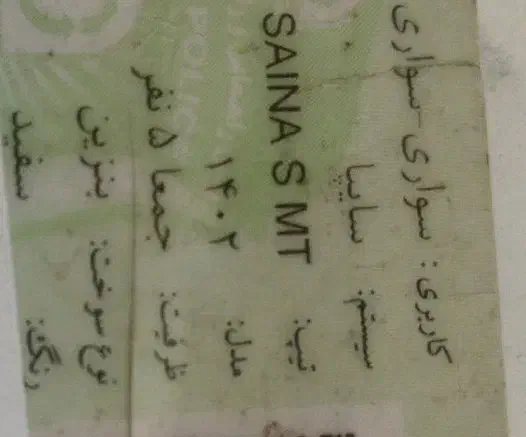 کاربری: سواری-سواری
سیستم: سایپا
تیپ: SAINA S MT
مدل: ۱۴۰۲
ظرفیت: جمعا ۵ نفر
نوع سوخت: بنزین
رنگ: سفید
POLICE